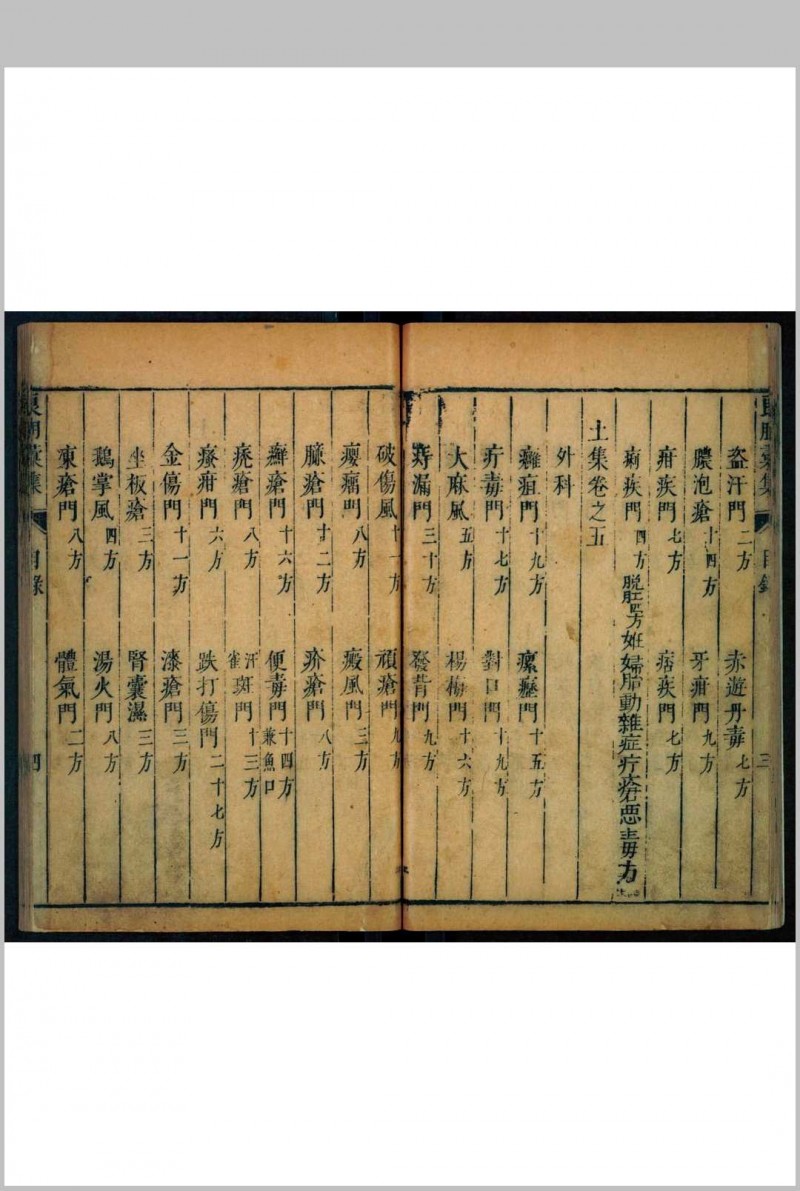 良朋彙集 目錄 三
盜汗門 二方 赤遊丹毒 七方
膿泡瘡 十四方 牙疳門 九方
疳疾門 七方 痞疾門 七方
痢疾門 四方 脫肛四方 妊婦胎動雜症疔瘡惡毒方
土集卷之五
外科
癰疽門 十九方 瘰癧門 十五方
疔毒門 十七方 對口門 十九方
大麻風 五方 楊梅門 十六方
痔漏門 三十方 發背門 九方
破傷風 十一方 頑瘡門 九方
癭瘤門 八方 癜風門 三方
臁瘡門 十二方 疥瘡門 八方
癬瘡門 十六方 便毒門 十四方 兼魚口
禿瘡門 八方 汗斑門 雀 十三方
瘊疳門 六方 跌打傷門 二十七方
金傷門 十一方 漆瘡門 三方
坐板瘡 三方 腎囊濕 三方
鵝掌風 四方 湯火門 八方
凍瘡門 八方 體氣門 二方
良朋彙集 目錄 四